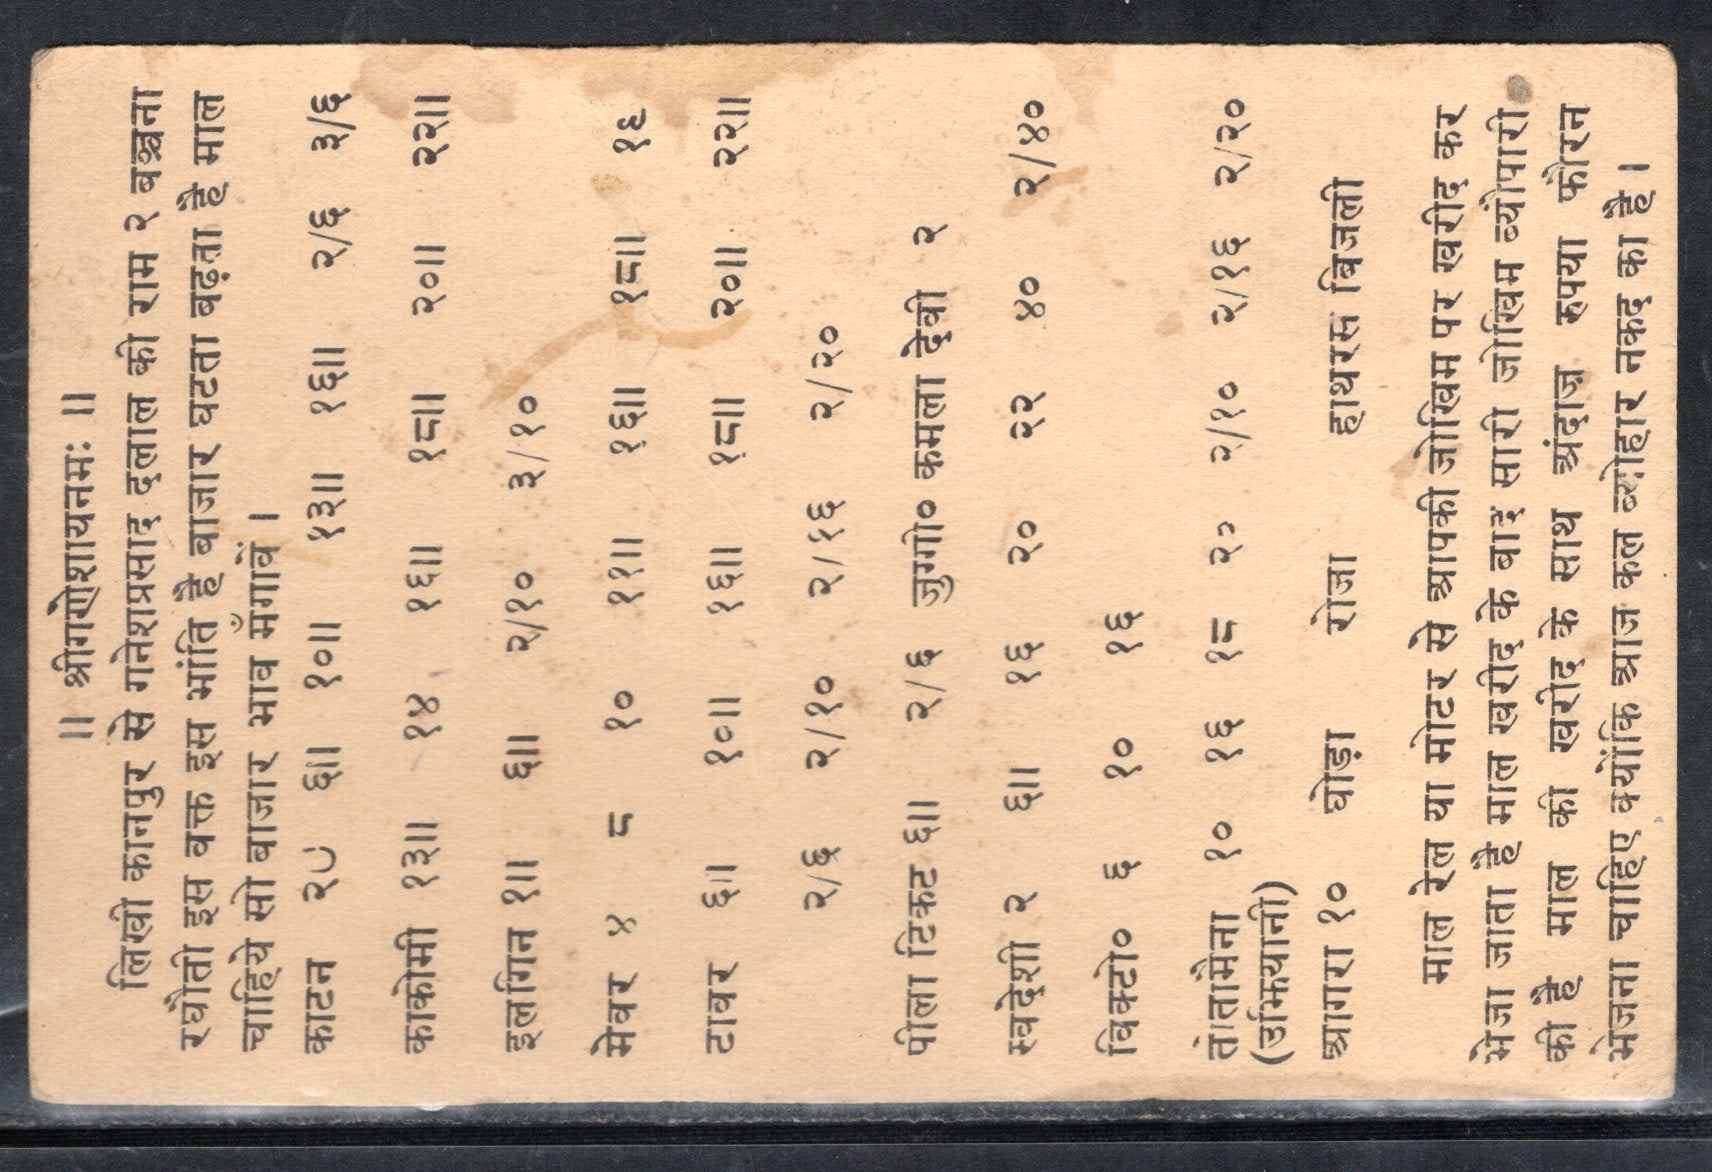 ॥ श्रीगणेशायनमः ॥
लिखी कानपुर से गनेशप्रसाद दलाल की राम २ बञ्चना
रघोती इस वक्त इस भांति है बाजार घटता बढ़ता है माल
चाहिये सो बाजार भाव मँगावें ।
काटन २७ ६॥ १०॥ १३॥ १६॥ २/६ ३/६
काकोमी १३॥ १४ १६॥ १८॥ २०॥ २२॥
इलगिन १॥ ६॥ २/१० ३/१०
मेवर ४ ८ १० ११॥ १६॥ १८॥ १६
टावर ६॥ १०॥ १६॥ १८॥ २०॥ २२॥
२/६ २/१० २/१६ २/२०
पीला टिकट ६॥ २/६ जुगी० कमला देवी २
स्वदेशी २ ६॥ १६ २० २२ ४० २/४०
विक्टो० ६ १० १६
तांतामैना १० १६ १८ २० २/१० २/१६ २/२०
(उझियानी)
आगरा १० घोड़ा रोजा हाथरस बिजली
माल रेल या मोटर से आपकी जोखिम पर खरीद कर
भेजा जाता है माल खरीद के बाद सारी जोखिम ब्यौपारी
की है माल की खरीद के साथ अंदाज़ रुपया फौरन
भेजना चाहिए क्योंकि आज कल ब्योहार नकद का है ।